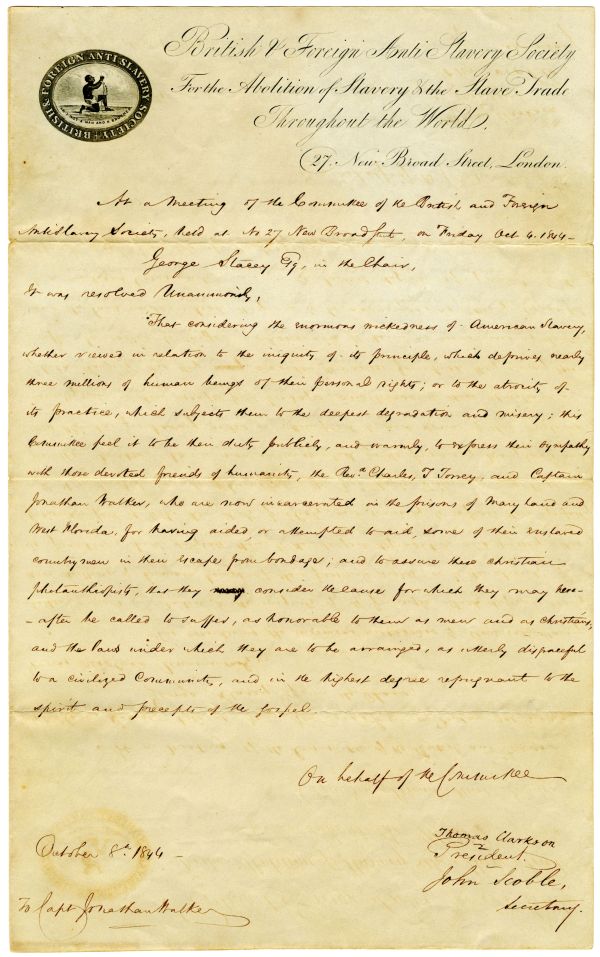 BRITISH & FOREIGN ANTI SLAVERY SOCIETY
AM I NOT A MAN AND A BROTHER
British & Foreign Anti Slavery Society
For the Abolition of Slavery & the Slave Trade
Throughout the World.
27, New Broad Street, London.
At a Meeting of the Committee of the British and Foreign
AntiSlavery Society, held at No 27 New Broad St, on Friday Oct 4. 1844 -
George Stacey Esq, in the Chair,
It was resolved Unanimously,
That considering the enormous wickedness of American Slavery,
whether viewed in relation to the iniquity of its principle, which deprives nearly
three millions of human beings of their personal rights; or to the atrocity of
its practice, which subjects them to the deepest degradation and misery; this
Committee feel it to be their duty publicly, and warmly, to express their sympathy
with those devoted friends of humanity, the Revd. Charles, T Torrey, and Captain
Jonathan Walker, who are now incarcerated in the prisons of Maryland and
West Florida, for having aided, or attempted to aid, some of their enslaved
countrymen in their escape from bondage; and to assure these christian
philanthropists, that they consider the cause for which they may here-
-after be called to suffer, as honorable to them as men and as christians,
and the laws under which they are to be arranged, as utterly disgraceful
to a civilized Community, and in the highest degree repugnant to the
spirit and precepts of the gospel.
On behalf of the Committee
Thomas Clarkson
President.
John Scoble,
Secretary.
October 8th. 1844 -
To Capt Jonathan Walker